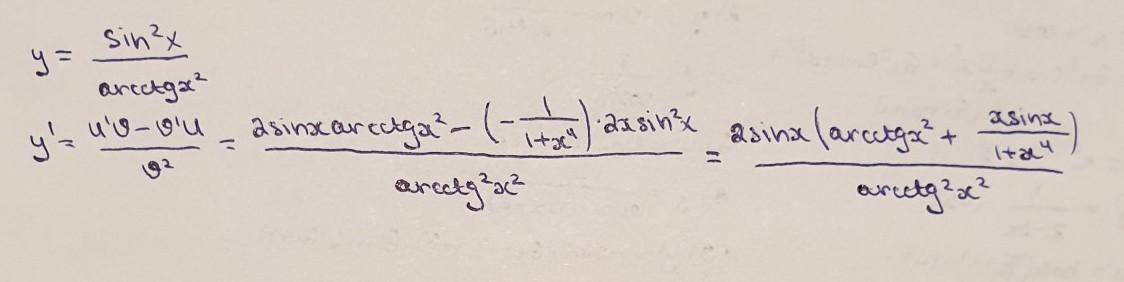 y = sin²x / arcctgx²
y' = (u'v − v'u) / v² = (2sinx arcctgx² − (−1/(1+x⁴))·2x sin²x) / arcctg²x² = 2sinx (arcctgx² + xsinx/(1+x⁴)) / arcctg²x²